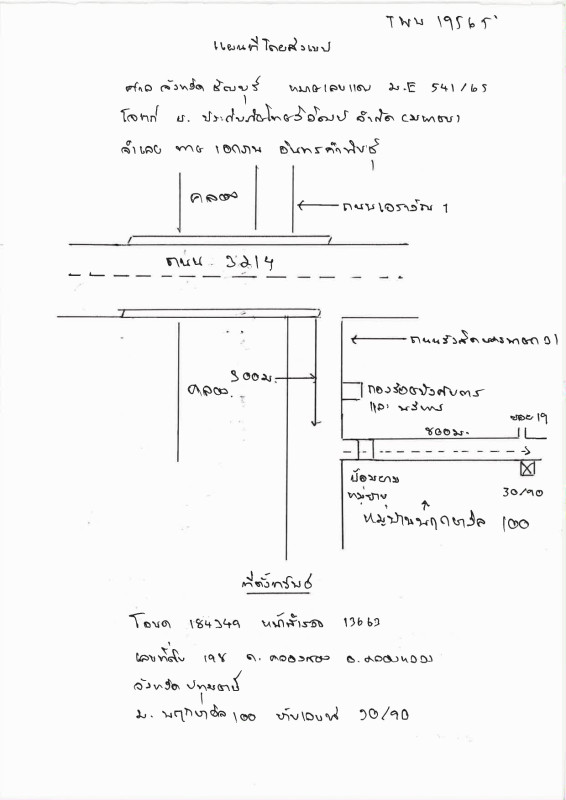 แผนที่โดยสังเขป
ศาล จังหวัด ธัญบุรี หมายเลขแดง ผบ.E 541/65
โจทก์ บ. ประกันภัยไทยวิวัฒน์ จำกัด (มหาชน)
จำเลย นาย เอกภพ
คลอง
ถนนเอราวัณ 1
ถนน 3214
ถนนรังสิต
300ม.
คลอง
กองร้อยบังคับการ
และ บริการ
ซอย 19
800ม.
ป้อมยาม
หมู่บ้าน
30/90
หมู่บ้านพฤกษาวิลล 100
ที่ตั้งทรัพย์
โฉนด 184349 หน้าสำรวจ 13663
เลขที่ดิน 198 ต. คลองสอง อ. คลองหลวง
จังหวัด ปทุมธานี
ม. พฤกษาวิลล 100 ทับเลขที่ 30/90